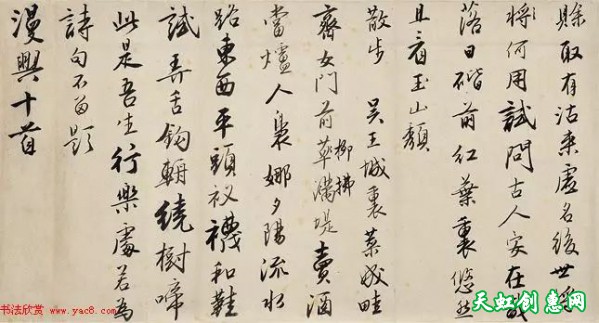 賒取有沽來虛名後世
將何用試問古人安在哉
落日階前紅葉裏悠然
且看玉山頹
散步 吳王城裏菜成畦
柳拂
齊女門前草滿堤賣酒
當壚人裊娜夕陽流水
路東西平頭衩襪和鞋
試弄舌鉤輈繞樹啼
此是吾生行樂處若為
詩句不留題
漫興十首
书法欣赏
www.yac8.com
天虹创惠网